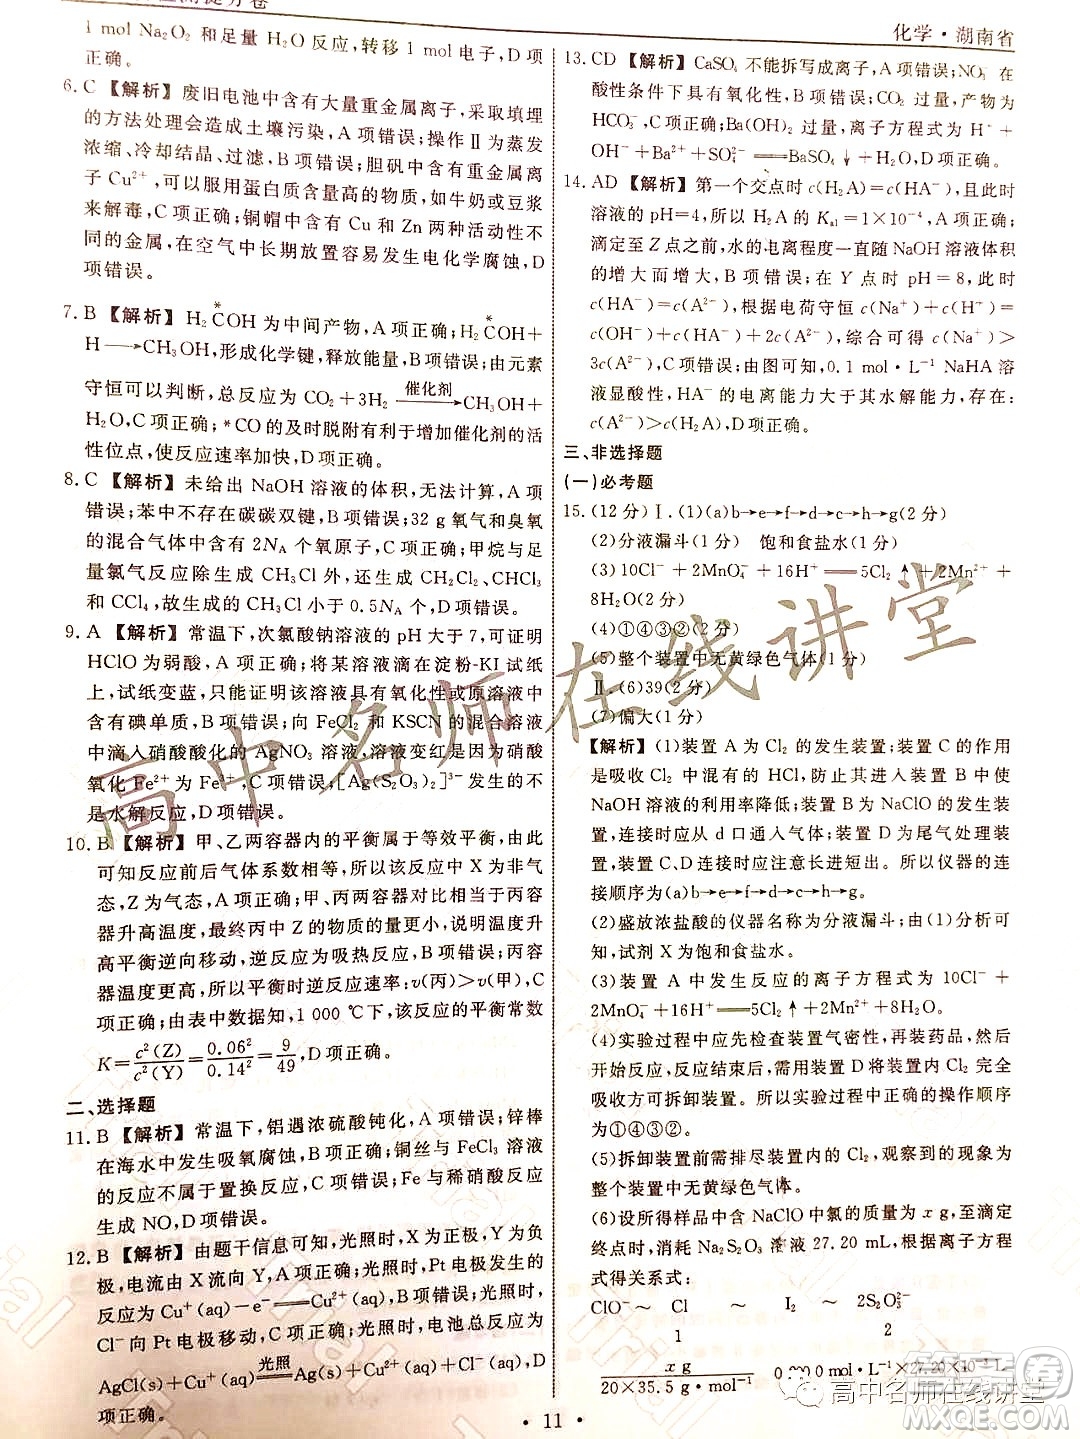 化学·湖南省
1 mol Na₂O₂ 和足量 H₂O 反应,转移 1 mol 电子,D 项
正确。
6. C 【解析】 废旧电池中含有大量重金属离子,采取填埋
的方法处理会造成土壤污染,A 项错误;操作Ⅱ为蒸发
浓缩、冷却结晶、过滤,B 项错误;胆矾中含有重金属离
子 Cu²⁺,可以服用蛋白质含量高的物质,如牛奶或豆浆
来解毒,C 项正确;铜帽中含有 Cu 和 Zn 两种活动性不
同的金属,在空气中长期放置容易发生电化学腐蚀,D
项错误。
7. B 【解析】 H₂C*OH 为中间产物,A 项正确;H₂C*OH+
H⟶CH₃OH,形成化学键,释放能量,B 项错误;由元素
守恒可以判断,总反应为 CO₂+3H₂ 催化剂⟶ CH₃OH+
H₂O,C 项正确;*CO 的及时脱附有利于增加催化剂的活
性位点,使反应速率加快,D 项正确。
8. C 【解析】 未给出 NaOH 溶液的体积,无法计算,A 项
错误;苯中不存在碳碳双键,B 项错误;32 g 氧气和臭氧
的混合气体中含有 2N_A 个氧原子,C 项正确;甲烷与足
量氯气反应除生成 CH₃Cl 外,还生成 CH₂Cl₂、CHCl₃
和 CCl₄,故生成的 CH₃Cl 小于 0.5N_A 个,D 项错误。
9. A 【解析】 常温下,次氯酸钠溶液的 pH 大于 7,可证明
HClO 为弱酸,A 项正确;将某溶液滴在淀粉-KI 试纸
上,试纸变蓝,只能证明该溶液具有氧化性或原溶液中
含有碘单质,B 项错误;向 FeCl₂ 和 KSCN 的混合溶液
中滴入硝酸酸化的 AgNO₃ 溶液,溶液变红是因为硝酸
氧化 Fe²⁺ 为 Fe³⁺,C 项错误;[Ag(S₂O₃)₂]³⁻ 发生的不
是水解反应,D 项错误。
10. B 【解析】 甲、乙两容器内的平衡属于等效平衡,由此
可知反应前后气体系数相等,所以该反应中 X 为非气
态,Z 为气态,A 项正确;由甲、丙两容器可知,丙相对甲容
器升高温度,最终丙中 Z 的物质的量更小,说明反应升
高平衡逆向移动,逆反应为吸热反应,B 项错误;丙容器
温度高,所以平衡时逆反应速率:v(丙)>v(甲),C 项正
确;由表中数据知,1 000 ℃下,该反应的平衡常数
K=c²(Z)/c²(Y)=0.06²/0.14²=9/49,D 项正确。
二、选择题
11. B 【解析】 常温下,铝遇浓硫酸钝化,A 项错误;锌棒
在海水中发生吸氧腐蚀,B 项正确;铜丝与 FeCl₃ 溶液
的反应不属于置换反应,C 项错误;Fe 与稀硝酸反应
生成 NO,D 项错误。
12. B 【解析】 由题干信息可知,光照时,X 为正极,Y 为负
极,电流由 X 流向 Y,A 项正确;光照时,Pt 电极发生的
反应为 Cu⁺(aq)-e⁻══Cu²⁺(aq),B 项错误;光照时,
Cl⁻向 Pt 电极移动,C 项正确;光照时,电池总反应为
AgCl(s)+Cu⁺(aq) 光照══ Ag(s)+Cu²⁺(aq)+Cl⁻(aq),D
项正确。
13. CD 【解析】 CaSO₄ 不能拆写成离子,A 项错误;NO₃⁻ 在
酸性条件下具有氧化性,B 项错误;CO₂ 过量,产物为
HCO₃⁻,C 项正确;Ba(OH)₂ 过量,离子方程式为 H⁺+
OH⁻+Ba²⁺+SO₄²⁻══BaSO₄↓+H₂O,D 项正确。
14. AD 【解析】 第一个交点时 c(H₂A)=c(HA⁻),且此时
溶液的 pH=4,所以 H₂A 的 Kₐ₁=1×10⁻⁴,A 项正确;
滴定至 Z 点之前,水的电离程度一直随 NaOH 溶液体积
的增大而增大,B 项错误;在 Y 点时 pH=8,此时
c(HA⁻)=c(A²⁻),根据电荷守恒 c(Na⁺)+c(H⁺)=
c(OH⁻)+c(HA⁻)+2c(A²⁻),综合可得 c(Na⁺)>
3c(A²⁻),C 项错误;由图可知,0.1 mol·L⁻¹ NaHA 溶
液显酸性,HA⁻ 的电离能力大于其水解能力,存在:
c(A²⁻)>c(H₂A),D 项正确。
三、非选择题
(一)必考题
15. (12 分)Ⅰ. (1)(a)b→e→f→d→c→h→g(2 分)
(2)分液漏斗 饱和食盐水(1 分)
(3)10Cl⁻+2MnO₄⁻+16H⁺══5Cl₂↑+2Mn²⁺+
8H₂O(2 分)
(4)①④③②(2 分)
(5)整个装置中无黄绿色气体(1 分)
Ⅱ. (6)39(2 分)
(7)偏大(1 分)
【解析】 (1)装置 A 为 Cl₂ 的发生装置;装置 C 的作用
是吸收 Cl₂ 中混有的 HCl,防止其进入装置 B 中使
NaOH 溶液的利用率降低;装置 B 为 NaClO 的制备装
置,连接时应从 d 口通入气体;装置 D 为尾气处理装
置,装置 C、D 连接时应注意长进短出。所以仪器的连
接顺序为(a)b→e→f→d→c→h→g。
(2)盛放浓盐酸的仪器名称为分液漏斗;由(1)分析可
知,试剂 X 为饱和食盐水。
(3)装置 A 中发生反应的离子方程式为 10Cl⁻+
2MnO₄⁻+16H⁺══5Cl₂↑+2Mn²⁺+8H₂O。
(4)实验过程中应先检查装置气密性,再装药品,然后
开始反应,反应结束后,需利用装置 D 将剩余 Cl₂ 完全
吸收方可拆卸装置。所以实验过程中的操作顺序应
为①④③②。
(5)拆卸装置前需排尽装置中的 Cl₂,观察到的现象为
整个装置中无黄绿色气体。
(6)设所得样品中含 NaClO 中氯的质量为 x g,至滴定
终点时,消耗 Na₂S₂O₃ 溶液 27.20 mL,根据离子方程
式得关系式:
ClO⁻ ~ Cl ~ I₂ ~ 2S₂O₃²⁻
1 2
x g/(20×35.5 g·mol⁻¹) mol·L⁻¹×27.20×10⁻³ L
高中名师在线讲堂
高中名师在线讲堂
答案圈
MXQE.COM
• 11 •